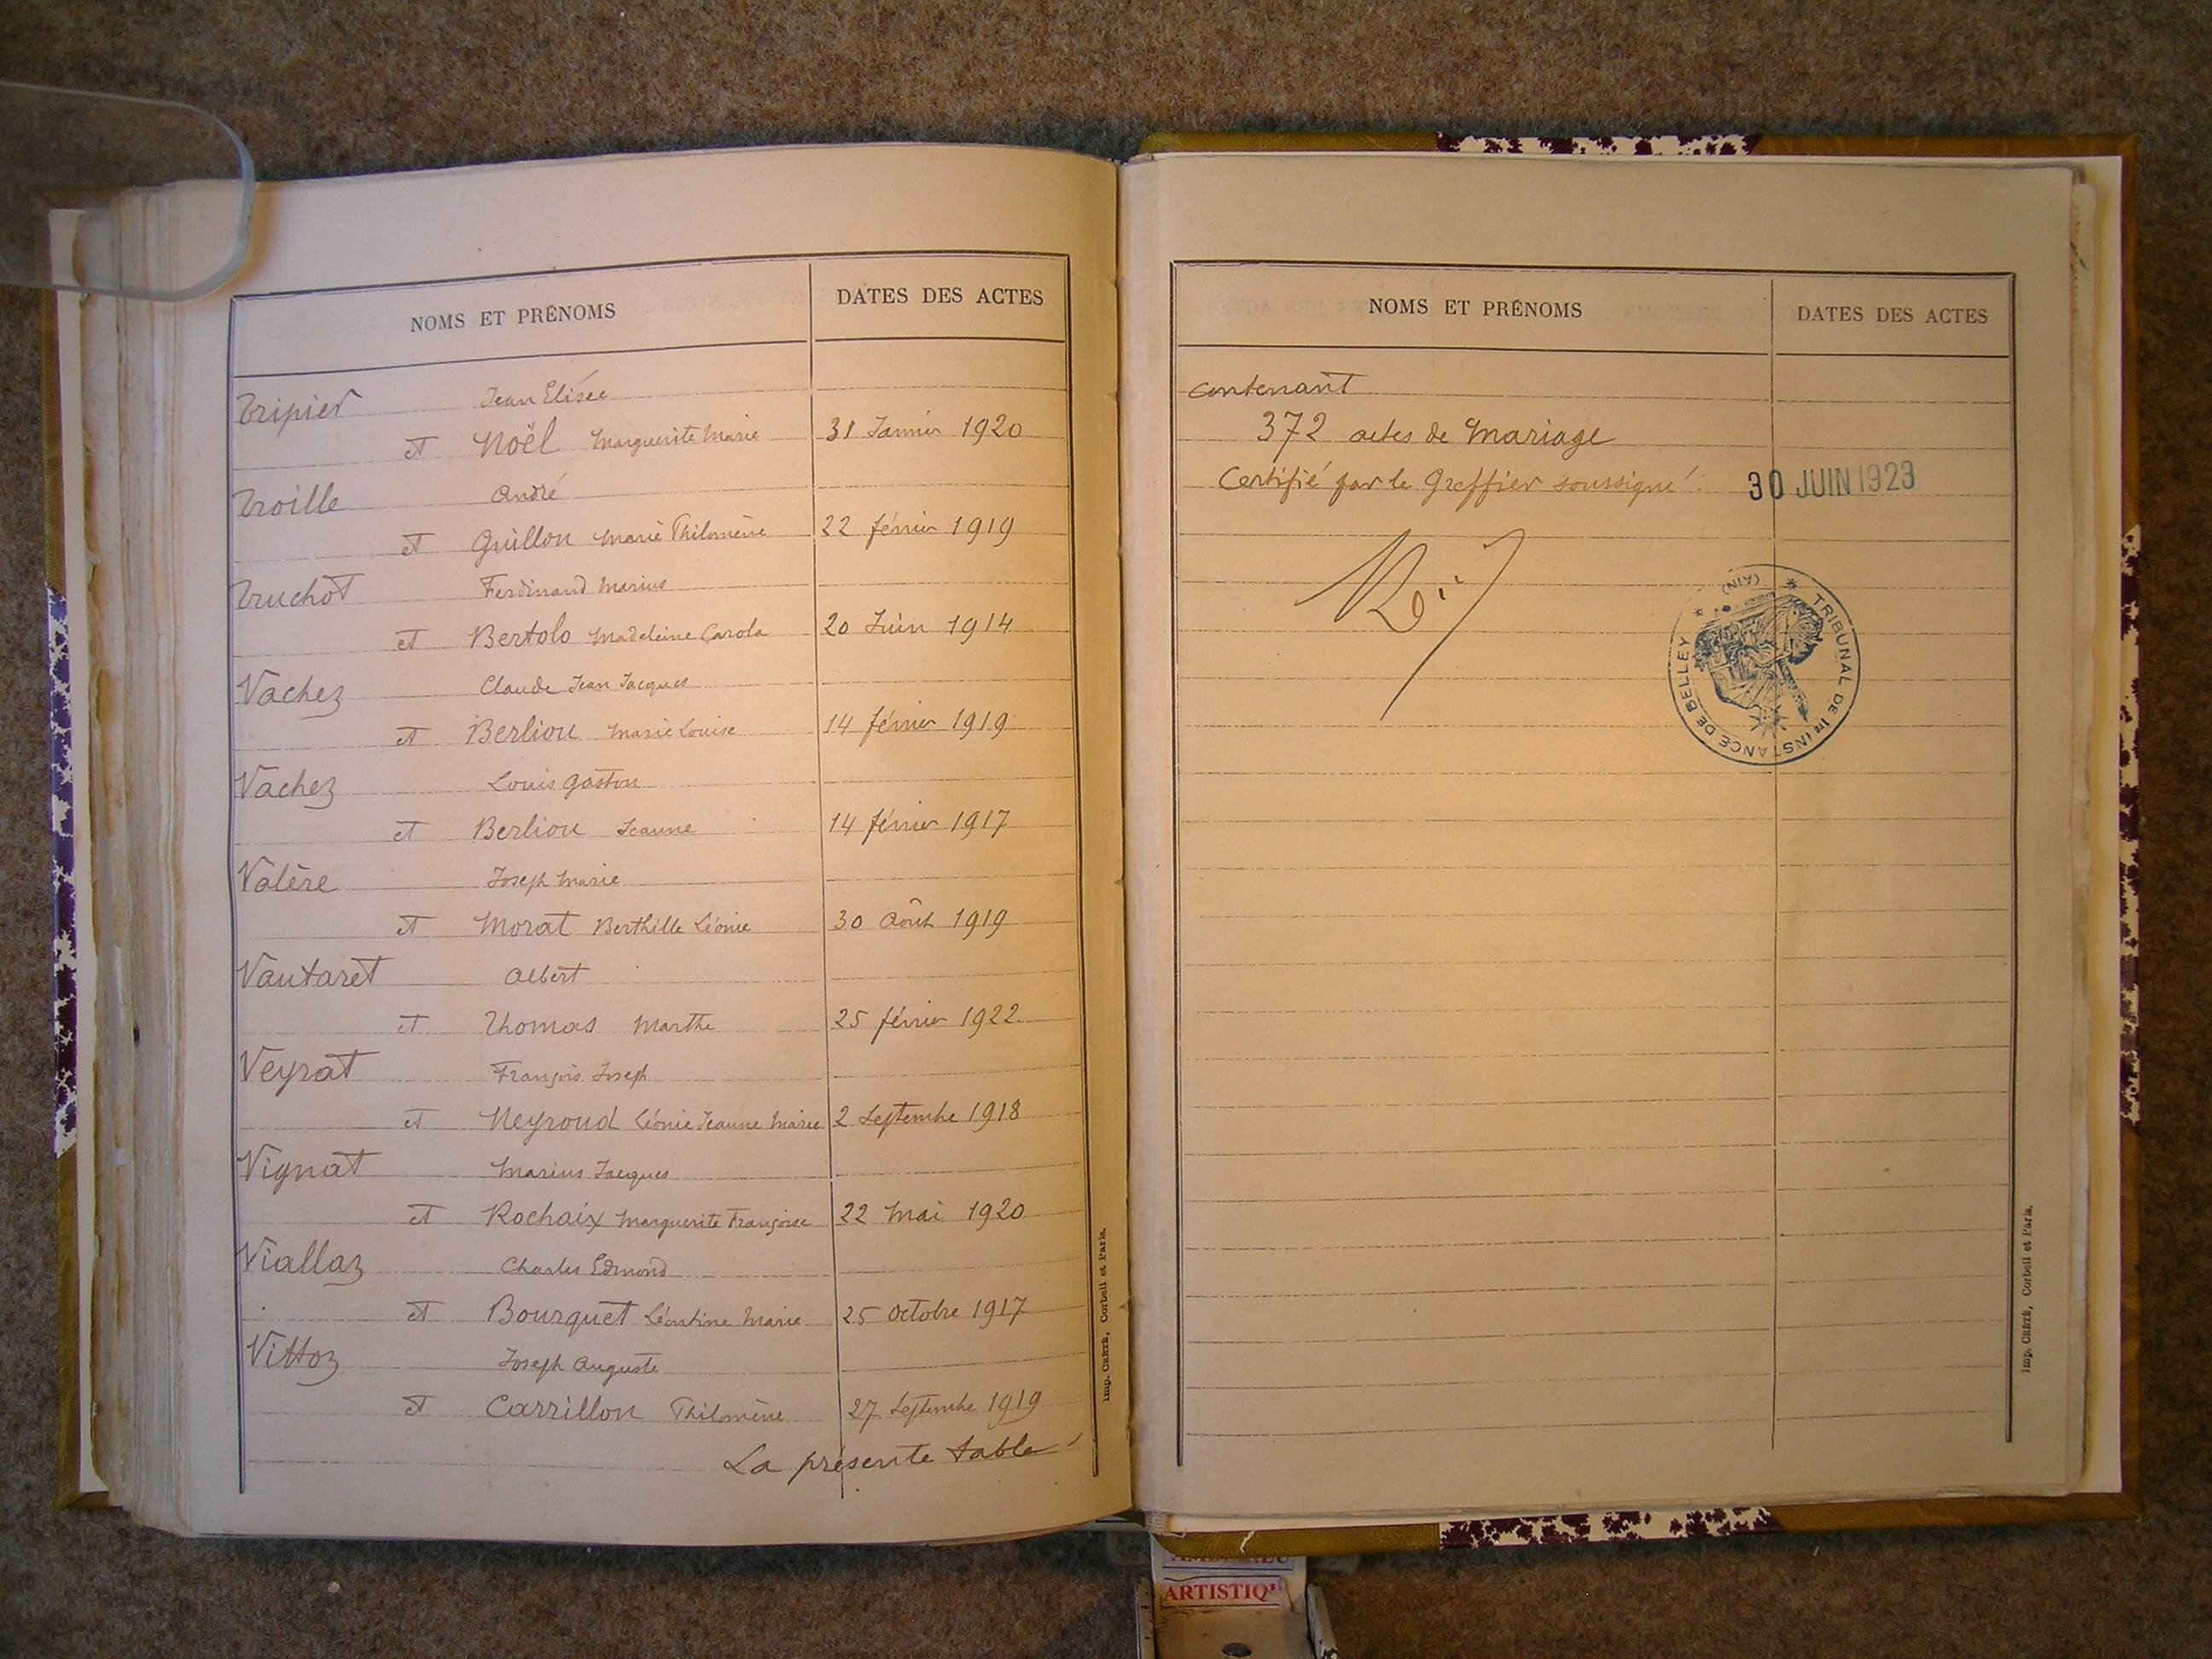 NOMS ET PRÉNOMS DATES DES ACTES
Tripier Jean Elisée
et Noël Marguerite Marie 31 Janvier 1920
Troille André
et Guillon Marie Philomène 22 février 1919
Truchot Ferdinand Marius
et Bertolo Madeleine Carola 20 Juin 1914
Vachez Claude Jean Jacques
et Berliou Marie Louise 14 février 1919
Vachez Louis Gaston
et Berliou Jeanne 14 février 1917
Valère Joseph Marie
et Morat Berthille Léonie 30 Août 1919
Vautaret Albert
et Thomas Marthe 25 février 1922
Veyrat François Joseph
et Neyroud Léonie Jeanne Marie 2 Septembre 1918
Vignat Marius Jacques
et Rochaix Marguerite Françoise 22 Mai 1920
Viallaz Charles Edmond
et Bourquet Léontine Marie 25 Octobre 1917
Vittoz Joseph Auguste
et Carrillon Philomène 27 Septembre 1919
La présente table
Imp. CRÉTÉ, Corbeil et Paris.
NOMS ET PRÉNOMS DATES DES ACTES
contenant
372 actes de Mariage
Certifié par le Greffier soussigné. 30 JUIN 1923
TRIBUNAL DE 1re INSTANCE DE BELLEY
(AIN)
Imp. CRÉTÉ, Corbeil et Paris.
ARTISTIQU